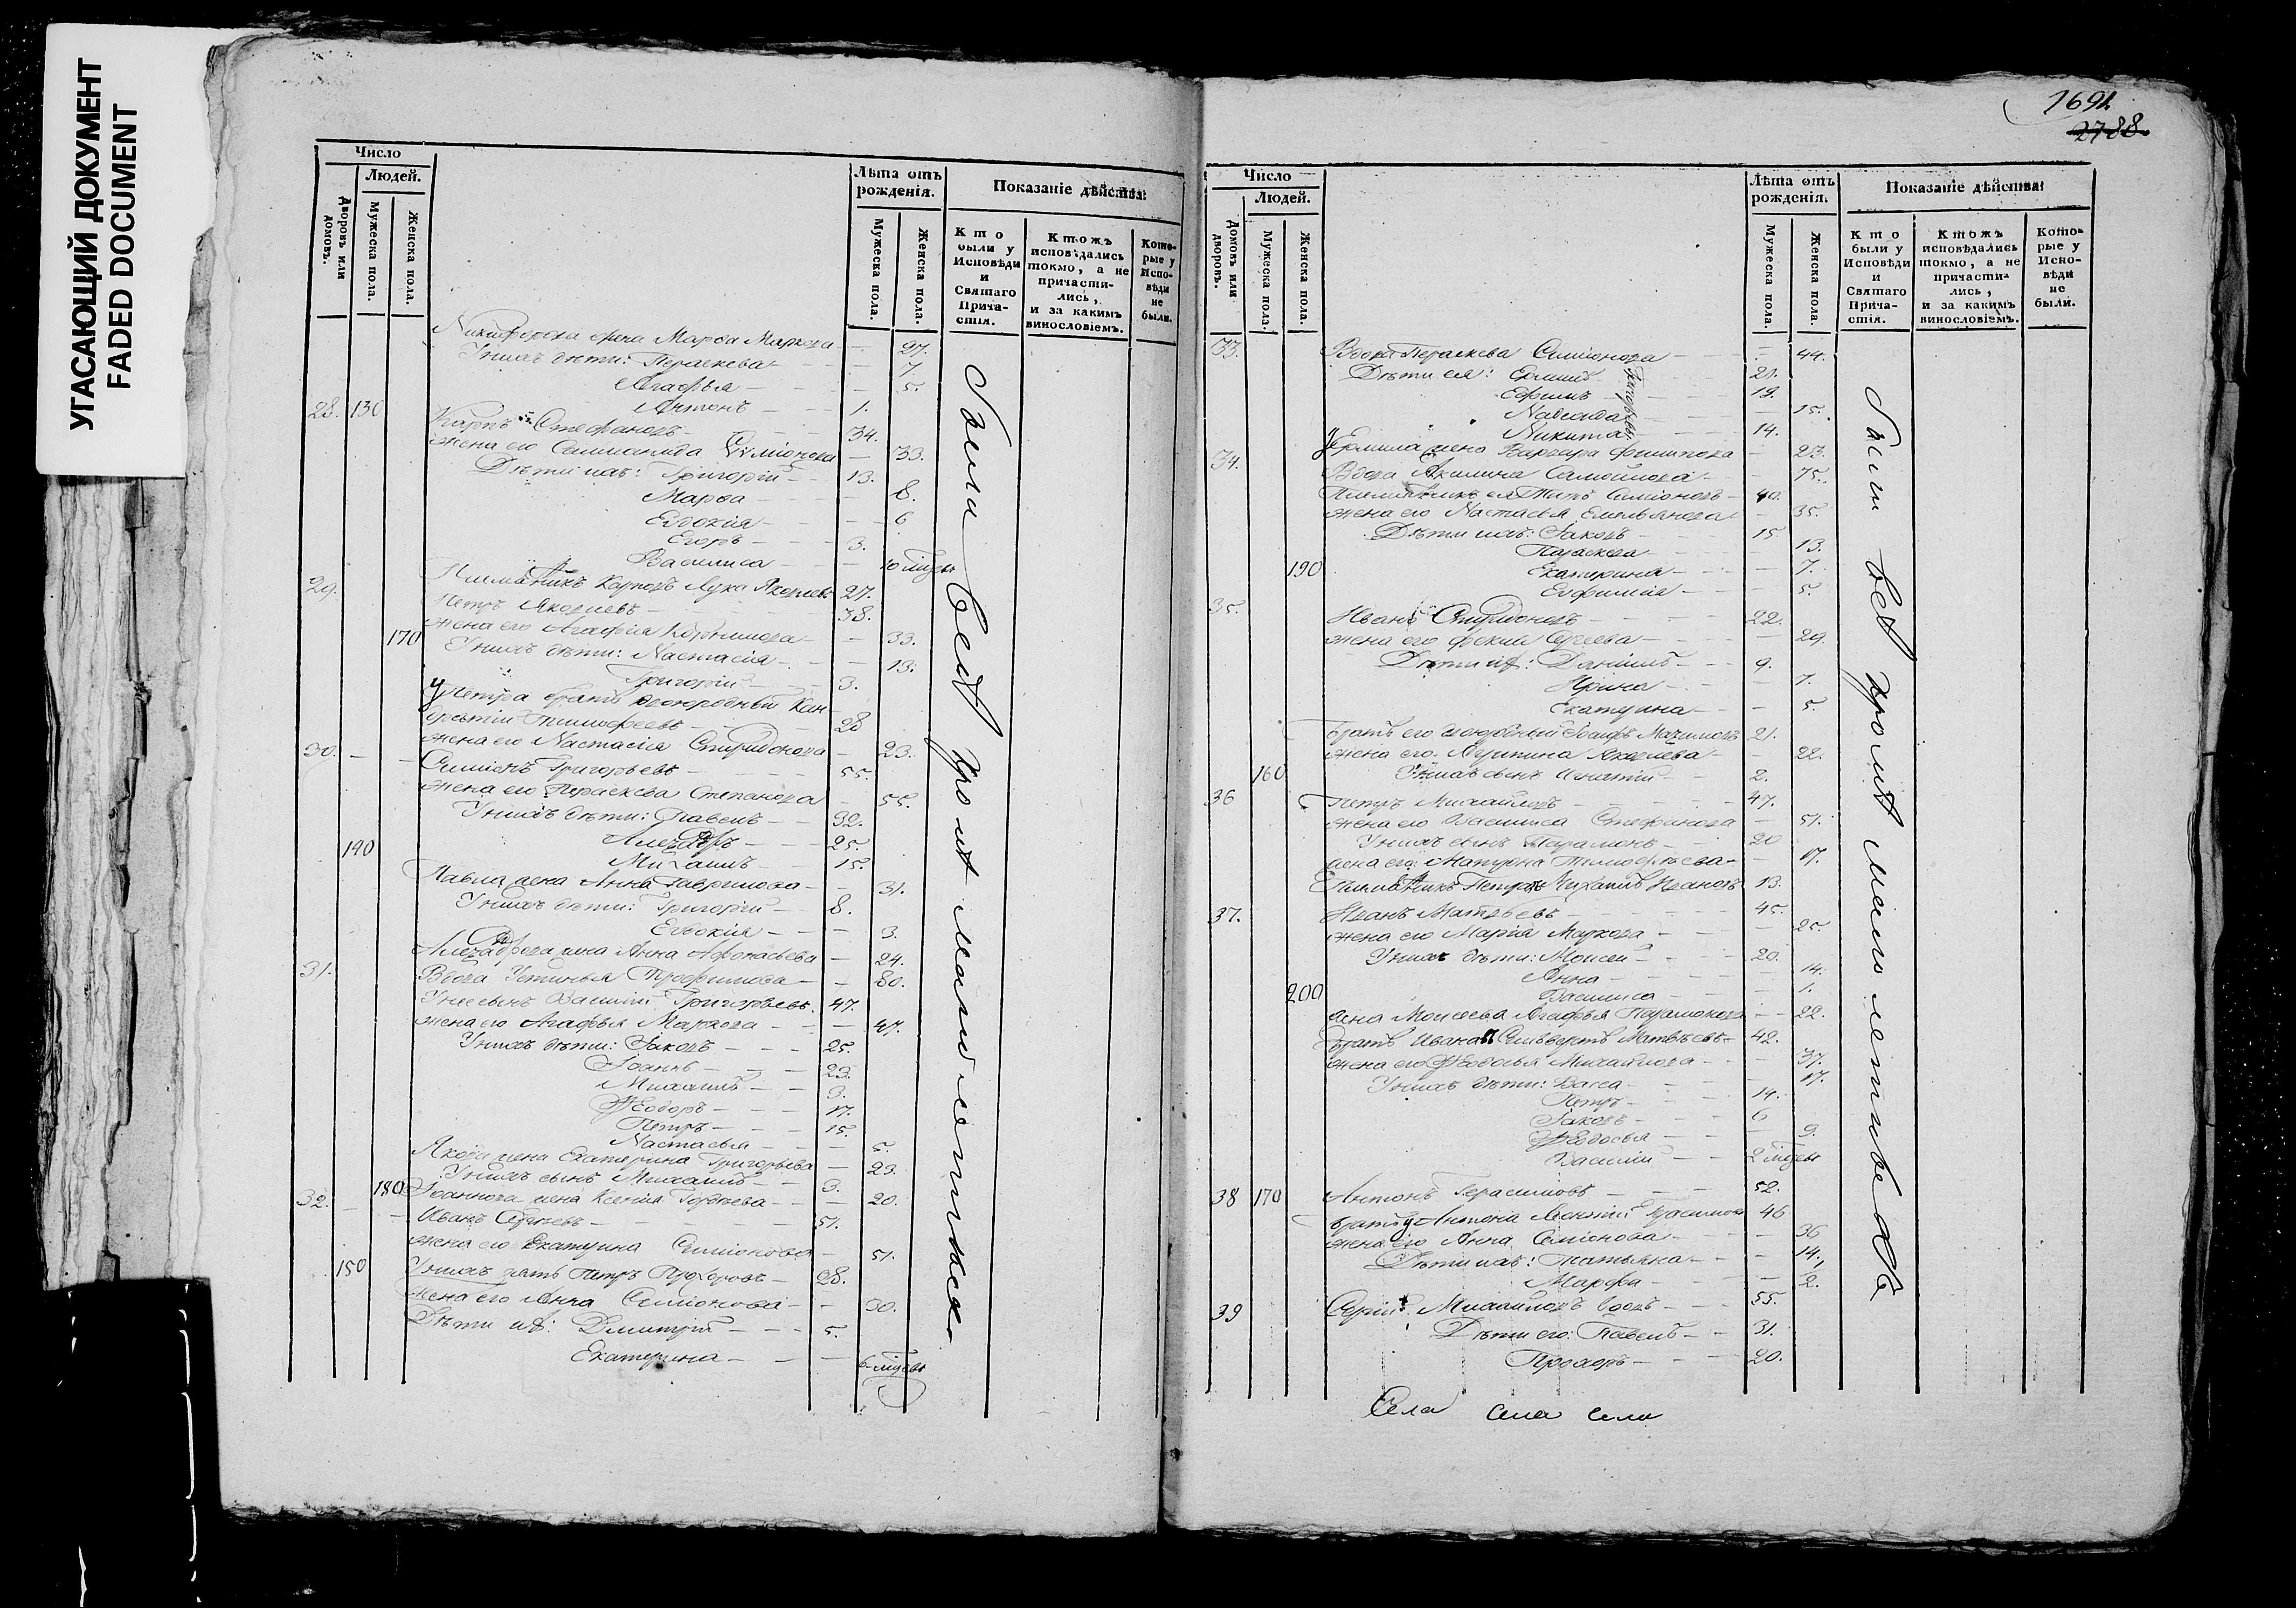 УГАСАЮЩИЙ ДОКУМЕНТ
FADED DOCUMENT
Число
Людей.
Дворовъ или домовъ.
Мужеска пола.
Женска пола.
Лѣта отъ рожденія.
Мужеска пола.
Женска пола.
Показаніе дѣйства:
Кто были у Исповѣди и Святаго Причастія.
Ктожъ исповѣдались токмо, а не причастились, и за какимъ винословіемъ.
Которые у Исповѣди не были.
жена Марфа Маркова — 27.
У нихъ дѣти: Параскева — 7.
Агафья — 5.
28. 130 Антонъ — 1.
Карпъ Стефановъ — 34.
жена его — 33.
Дѣти ихъ: Григорій — 13.
Марфа — 8.
Евдокія — 6
Егоръ — 3.
Василиса — 10 мѣсяц
29. Племянникъ Карповъ Лука Яковлевъ 27.
Петръ Яковлевъ — 38.
170 жена его Агафія — 33.
У нихъ дѣти: Настасія — 13.
Григорій — 3.
У Петра братъ двоюродный Кон-
дратій Тимофеевъ — 28
жена его Настасія Спиридонова — 23.
30. Симіонъ Григорьевъ — 55.
жена его Параскева Степанова — 55.
У нихъ дѣти: Павелъ — 32.
140 — 25.
Михаилъ — 15.
Павла жена Анна Гаврилова — 31.
У нихъ дѣти: Григорій — 8.
Евдокія — 3.
жена Анна Афонасьева — 24.
31. Вдова Устинья Трофимова — 80.
У нее сынъ Василій Григорьевъ. 47.
жена его Агафья Маркова — 47.
У нихъ дѣти: Іаковъ — 25.
Іоаннъ — 23.
Михаилъ — 3.
Ѳеодоръ — 17.
Петръ — 15.
Настасья — 5.
Якова жена Екатерина Григорьева — 23.
У нихъ сынъ Михаилъ — 3.
180 Іоаннова жена Ксенія — 20.
32. Иванъ Сергѣевъ — 51.
жена его Екатерина Симіонова — 51.
150 У нихъ зять Петръ Прохоровъ — 28.
жена его Анна Симіонова — 30.
Дѣти ихъ: Димитрій — 5.
Екатерина — 6 мѣсяц
Были всѣ кромѣ малолетнихъ
1691.
2788
Число
Людей.
Домовъ или дворовъ.
Мужеска пола.
Женска пола.
Лѣта отъ рожденія.
Мужеска пола.
Женска пола.
Показаніе дѣйства:
Кто были у Исповѣди и Святаго Причастія.
Ктожъ исповѣдались токмо, а не причастились, и за какимъ винословіемъ.
Которые у Исповѣди не были.
33. Вдова Параскева Симіонова — 44.
Дѣти ея: Ермилъ — 21.
Ефимъ — 19.
— 15.
Никита — 14.
Ермила жена Варвара Филипова — 23.
34. Вдова Акилина Самойлова — 75.
Племянникъ ея Титъ Симіоновъ — 40.
жена его Настасья Емельянова — 35.
Дѣти ихъ: Іаковъ — 15
Параскева — 13.
190 Екатерина — 7.
Евфимія — 5.
35. Иванъ Спиридоновъ — 22.
жена его Сергеева — 29.
Дѣти ихъ: Даніилъ — 9.
Ирина — 7.
Екатерина — 5.
Братъ его двоюродный 21.
жена его Яковлева — 22.
160 У нихъ сынъ Игнатій — 2.
36 Петръ Михайловъ — 47.
жена его Василиса Стефанова — 51.
У нихъ сынъ Парамонъ — 20
жена его Матрона Тимофѣева — 17.
Племянникъ Петра Михаилъ Ивановъ 13.
37. Иванъ Матвѣевъ — 45.
жена его Марія Маркова — 25
У нихъ дѣти: Моисей — 20.
Анна — 14.
200 Василиса — 1.
жена Моисеева Агафья Парамонова — 22.
Братъ Ивана Матвѣевъ — 42.
жена его Ѳеодосья Михайлова — 37.
У нихъ дѣти: Васса — 17.
Петръ — 14.
Іаковъ — 6
Ѳеодосья — 9.
Василій — 2 мѣсяц
38 170 Антонъ Герасимовъ — 52.
братъ у Антона Герасимовъ 46
жена его Анна Семіонова — 36
Дѣти ихъ: Татьяна — 14.
Марфа — 2.
39 Сергій Михайловъ вдовъ — 55.
Дѣти его: Павелъ — 31.
Прохоръ — 20.
Были всѣ кромѣ малолетнихъ
Села